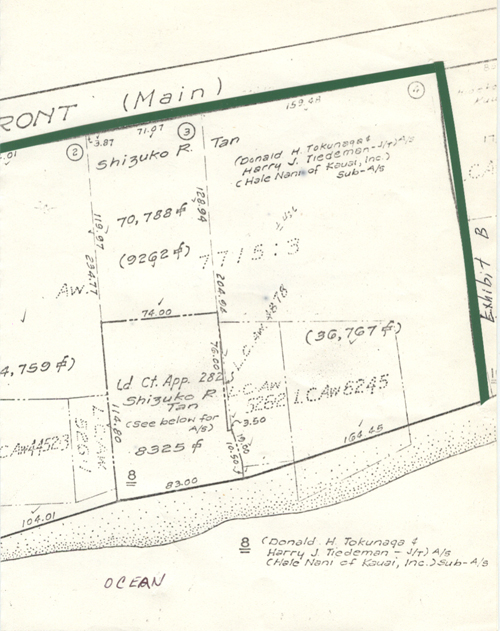 RONT (Main)
71.97
3.87
2
3
Shizuko R. Tan
(Donald H. Tokunaga &
Harry J. Tiedeman-J/T) A/S
(Hale Nani of Kauai, Inc.)
Sub-A/s
70,788 ⌗
(9262 ⌗)
128.94
119.97
234.77
204.96
7715:3
AW.
74.00
76.00
L.C.AW. 4878
(36,767 ⌗)
4,759 ⌗)
Ld Ct. App. 282
Shizuko R
Tan
(see below for
A/S)
8325 ⌗
8
114.80
L.C.AW
5262
L.C.AW6245
3.50
10.50
164.45
83.00
104.01
Exhibit B
8 (Donald H. Tokunaga &
Harry J. Tiedeman - J/T) A/S
(Hale Nani of Kauai, Inc.) Sub-A/s
OCEAN